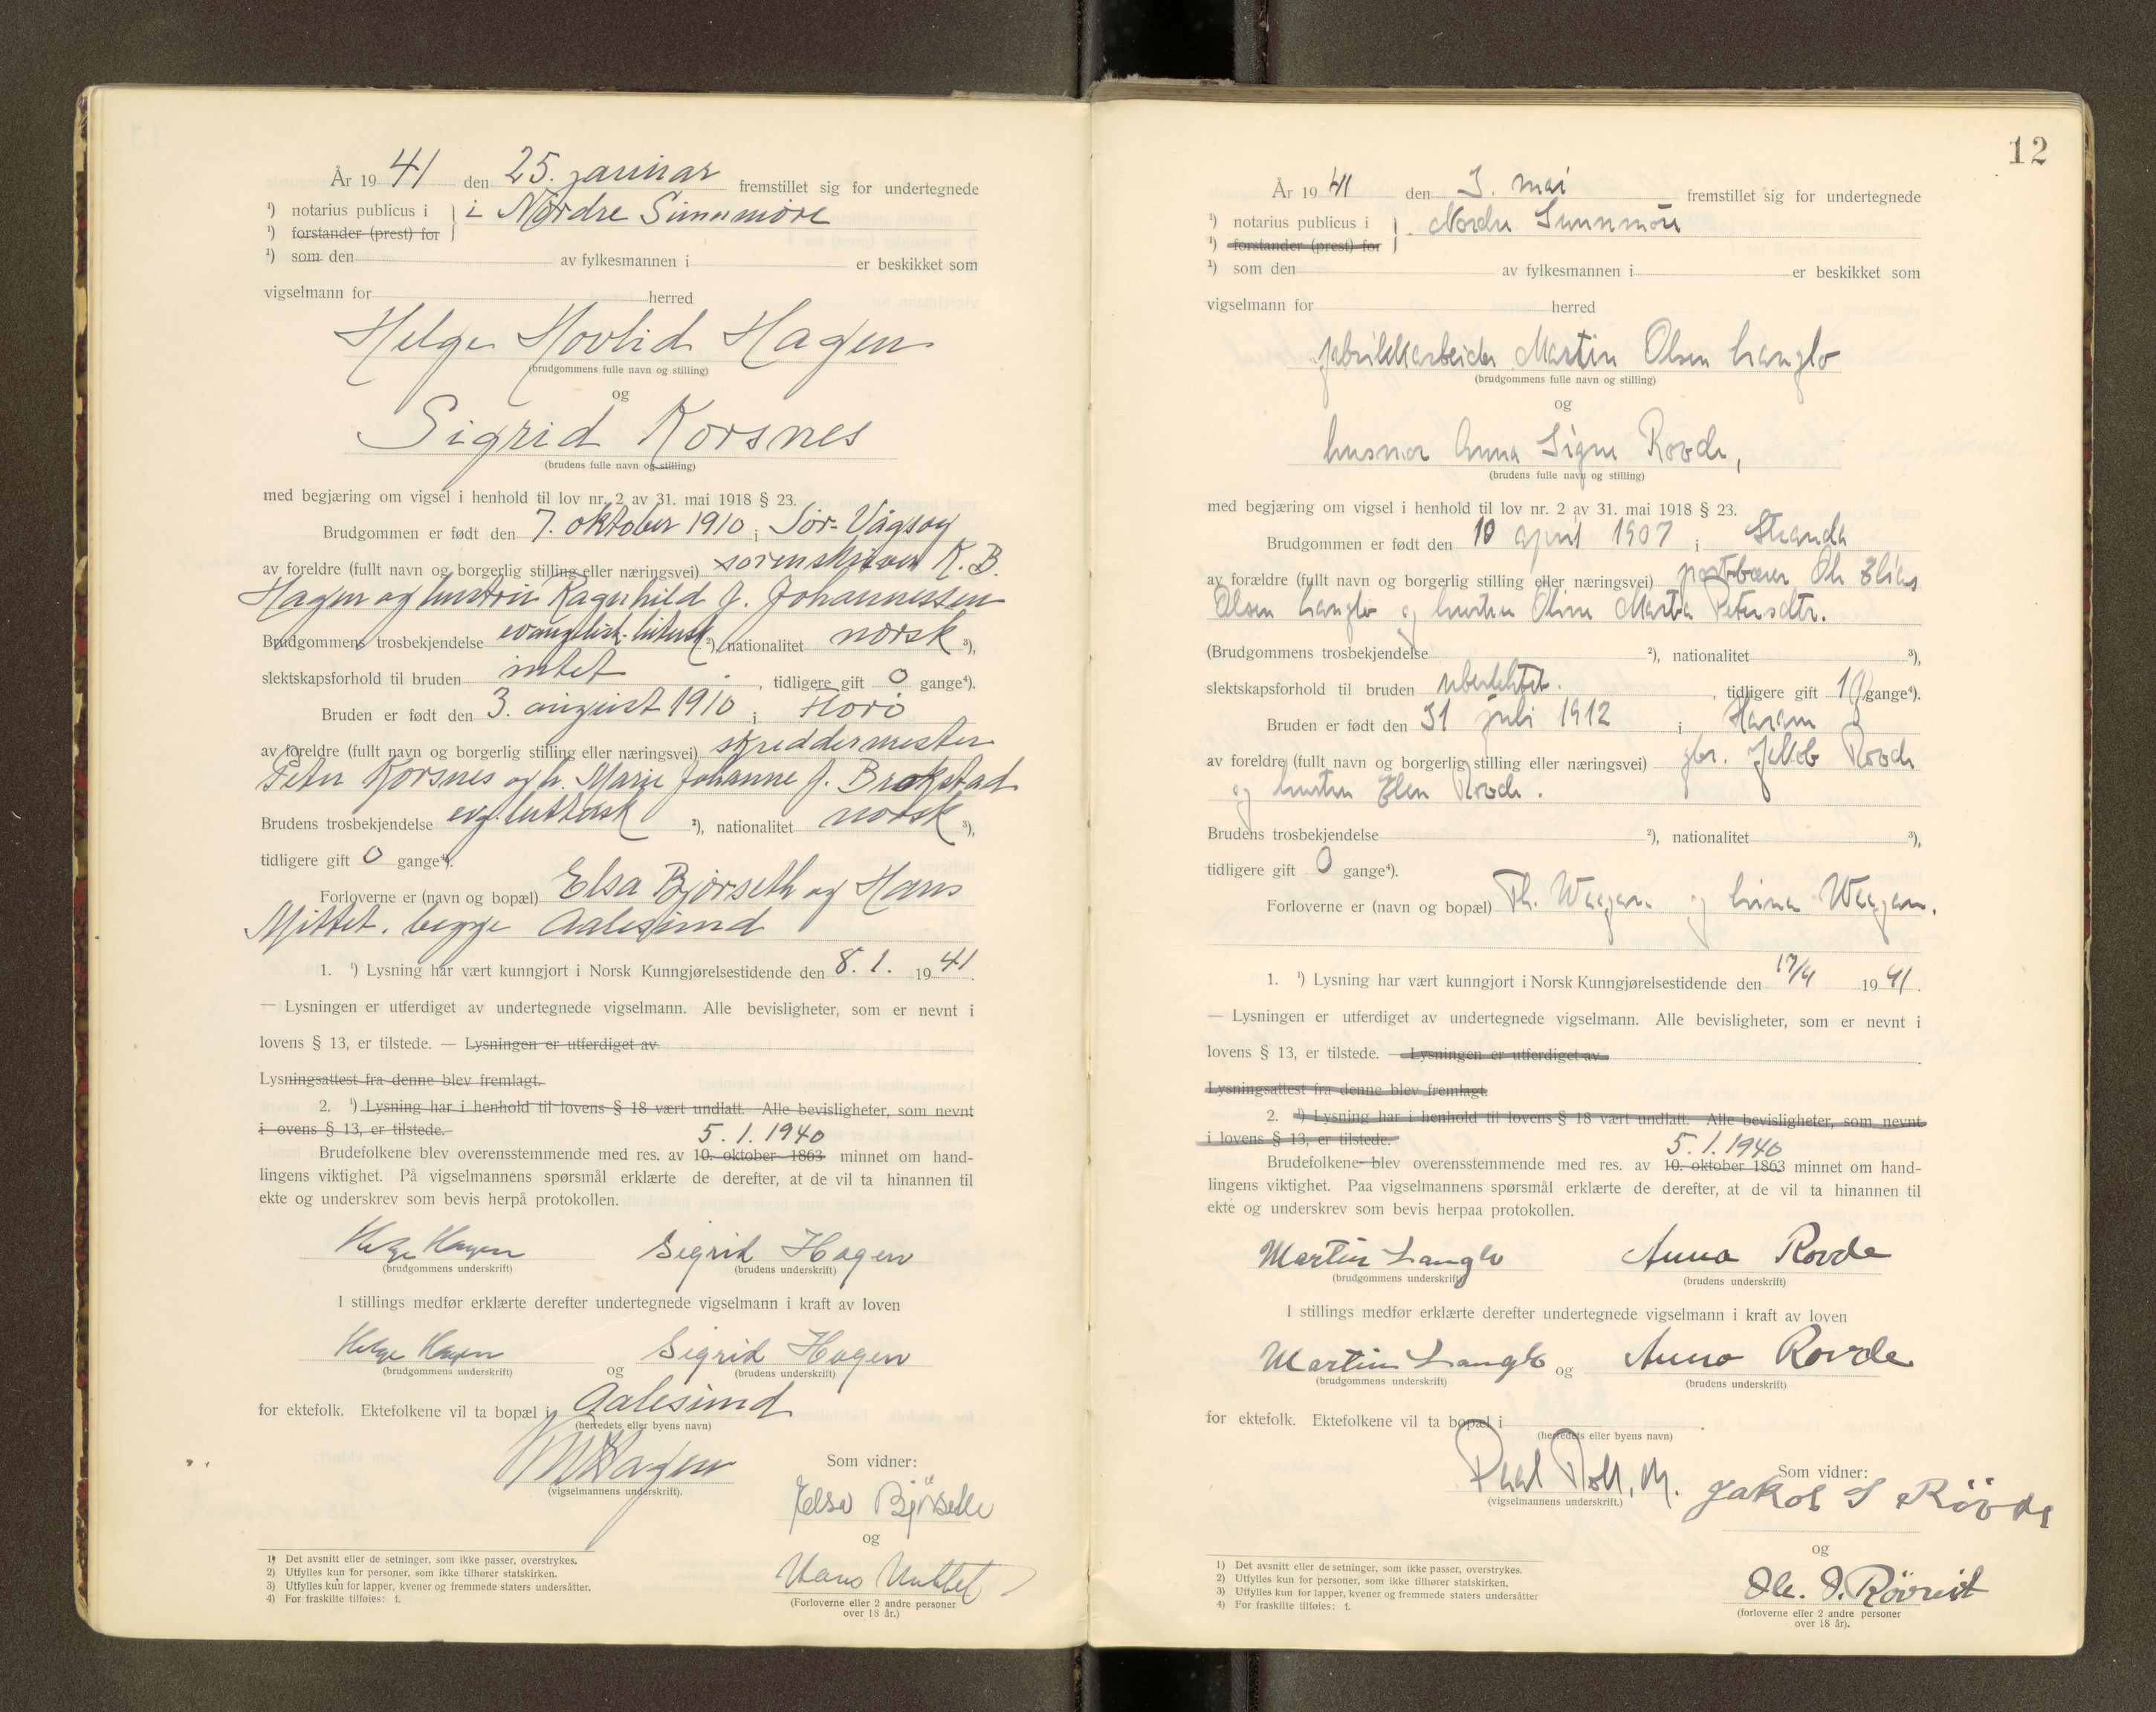 År 1941 den 25. januar fremstillet sig for undertegnede
¹) notarius publicus i } i Nordre Sunnmøre
¹) forstander (prest) for
¹) som den av fylkesmannen i er beskikket som
vigselmann for herred
Helge Hovlid Hagen
(brudgommens fulle navn og stilling)
og
Sigrid Korsnes
(brudens fulle navn og stilling)
med begjæring om vigsel i henhold til lov nr. 2 av 31. mai 1918 § 23.
Brudgommen er født den 7. oktober 1910 i Sør-Vågsøy
av foreldre (fullt navn og borgerlig stilling eller næringsvei) sorenskriver K. B.
Hagen og hustru Ragnhild f. Johannessen
Brudgommens trosbekjendelse evangelisk-luthersk ²), nationalitet norsk ³),
slektskapsforhold til bruden intet, tidligere gift 0 gange⁴).
Bruden er født den 3. august 1910 i Florø
av foreldre (fullt navn og borgerlig stilling eller næringsvei) skreddermester
Peter Korsnes og h. Marie Johanne f. Brokstad
Brudens trosbekjendelse evg. luthersk ²), nationalitet norsk ³),
tidligere gift 0 gange⁴).
Forloverne er (navn og bopæl) Elsa Bjørseth og Hans
Mittet. begge Aalesund
1. ¹) Lysning har vært kunngjort i Norsk Kunngjørelsestidende den 8. 1. 1941.
— Lysningen er utferdiget av undertegnede vigselmann. Alle bevisligheter, som er nevnt i
lovens § 13, er tilstede. — Lysningen er utferdiget av
Lysningsattest fra denne blev fremlagt.
2. ¹) Lysning har i henhold til lovens § 18 vært undlatt. Alle bevisligheter, som nevnt
i ovens § 13, er tilstede.
5. 1. 1940
Brudefolkene blev overensstemmende med res. av 10. oktober 1863 minnet om hand-
lingens viktighet. På vigselmannens spørsmål erklærte de derefter, at de vil ta hinannen til
ekte og underskrev som bevis herpå protokollen.
Helge Hagen Sigrid Hagen
(brudgommens underskrift) (brudens underskrift)
I stillings medfør erklærte derefter undertegnede vigselmann i kraft av loven
Helge Hagen og Sigrid Hagen
(brudgommens underskrift) (brudens underskrift)
for ektefolk. Ektefolkene vil ta bopæl i Aalesund
(herredets eller byens navn)
Hagen
(vigselmannens underskrift).
Som vidner:
Elsa Bjørseth
og
Hans Mittet
(Forloverne eller 2 andre personer
over 18 år.)
1) Det avsnitt eller de setninger, som ikke passer, overstrykes.
2) Utfylles kun for personer, som ikke tilhører statskirken.
3) Utfylles kun for lapper, kvener og fremmede staters undersåtter.
4) For fraskilte tilføies: f.
12
År 1941 den 3. mai fremstillet sig for undertegnede
¹) notarius publicus i } Nordre Sunnmøre
¹) forstander (prest) for
¹) som den av fylkesmannen i er beskikket som
vigselmann for herred
fabrikkarbeider Martin Olsen Langlo
(brudgommens fulle navn og stilling)
og
husmor Anna Signe Rovde,
(brudens fulle navn og stilling)
med begjæring om vigsel i henhold til lov nr. 2 av 31. mai 1918 § 23.
Brudgommen er født den 10 april 1907 i Stranda
av forældre (fullt navn og borgerlig stilling eller næringsvei) postbærer Ole Elias
Olsen Langlo og hustru Oline Marta Petersdtr.
(Brudgommens trosbekjendelse ²), nationalitet ³),
slektskapsforhold til bruden ubeslektet. , tidligere gift 1 gange⁴).
Bruden er født den 31 juli 1912 i Haram
av foreldre (fullt navn og borgerlig stilling eller næringsvei) gbr. Jakob Rovde
og hustru Elen Rovde.
Brudens trosbekjendelse ²), nationalitet ³),
tidligere gift 0 gange⁴).
Forloverne er (navn og bopæl) Th. Waagan og Waagan.
1. ¹) Lysning har vært kunngjort i Norsk Kunngjørelsestidende den 17/4 1941.
— Lysningen er utferdiget av undertegnede vigselmann. Alle bevisligheter, som er nevnt i
lovens § 13, er tilstede. — Lysningen er utferdiget av .
Lysningsattest fra denne blev fremlagt.
2. ¹) Lysning har i henhold til lovens § 18 vært undlatt. Alle bevisligheter, som nevnt
i lovens § 13, er tilstede.
5. 1. 1940
Brudefolkene blev overensstemmende med res. av 10. oktober 1863 minnet om hand-
lingens viktighet. Paa vigselmannens spørsmål erklærte de derefter, at de vil ta hinannen til
ekte og underskrev som bevis herpaa protokollen.
Martin Langlo Anna Rovde
(brudgommens underskrift) (brudens underskrift)
I stillings medfør erklærte derefter undertegnede vigselmann i kraft av loven
Martin Langlo og Anna Rovde
(brudgommens underskrift) (brudens underskrift)
for ektefolk. Ektefolkene vil ta bopæl i .
(herredets eller byens navn)
(vigselmannens underskrift.)
Som vidner:
Jakob S Røvde
og
Ole.
(forloverne eller 2 andre personer
over 18 år).
1) Det avsnitt eller de setninger, som ikke passer, overstrykes.
2) Utfylles kun for personer, som ikke tilhører statskirken.
3) Utfylles kun for lapper, kvener og fremmede staters undersåtter
4) For fraskilte tilføies: f.